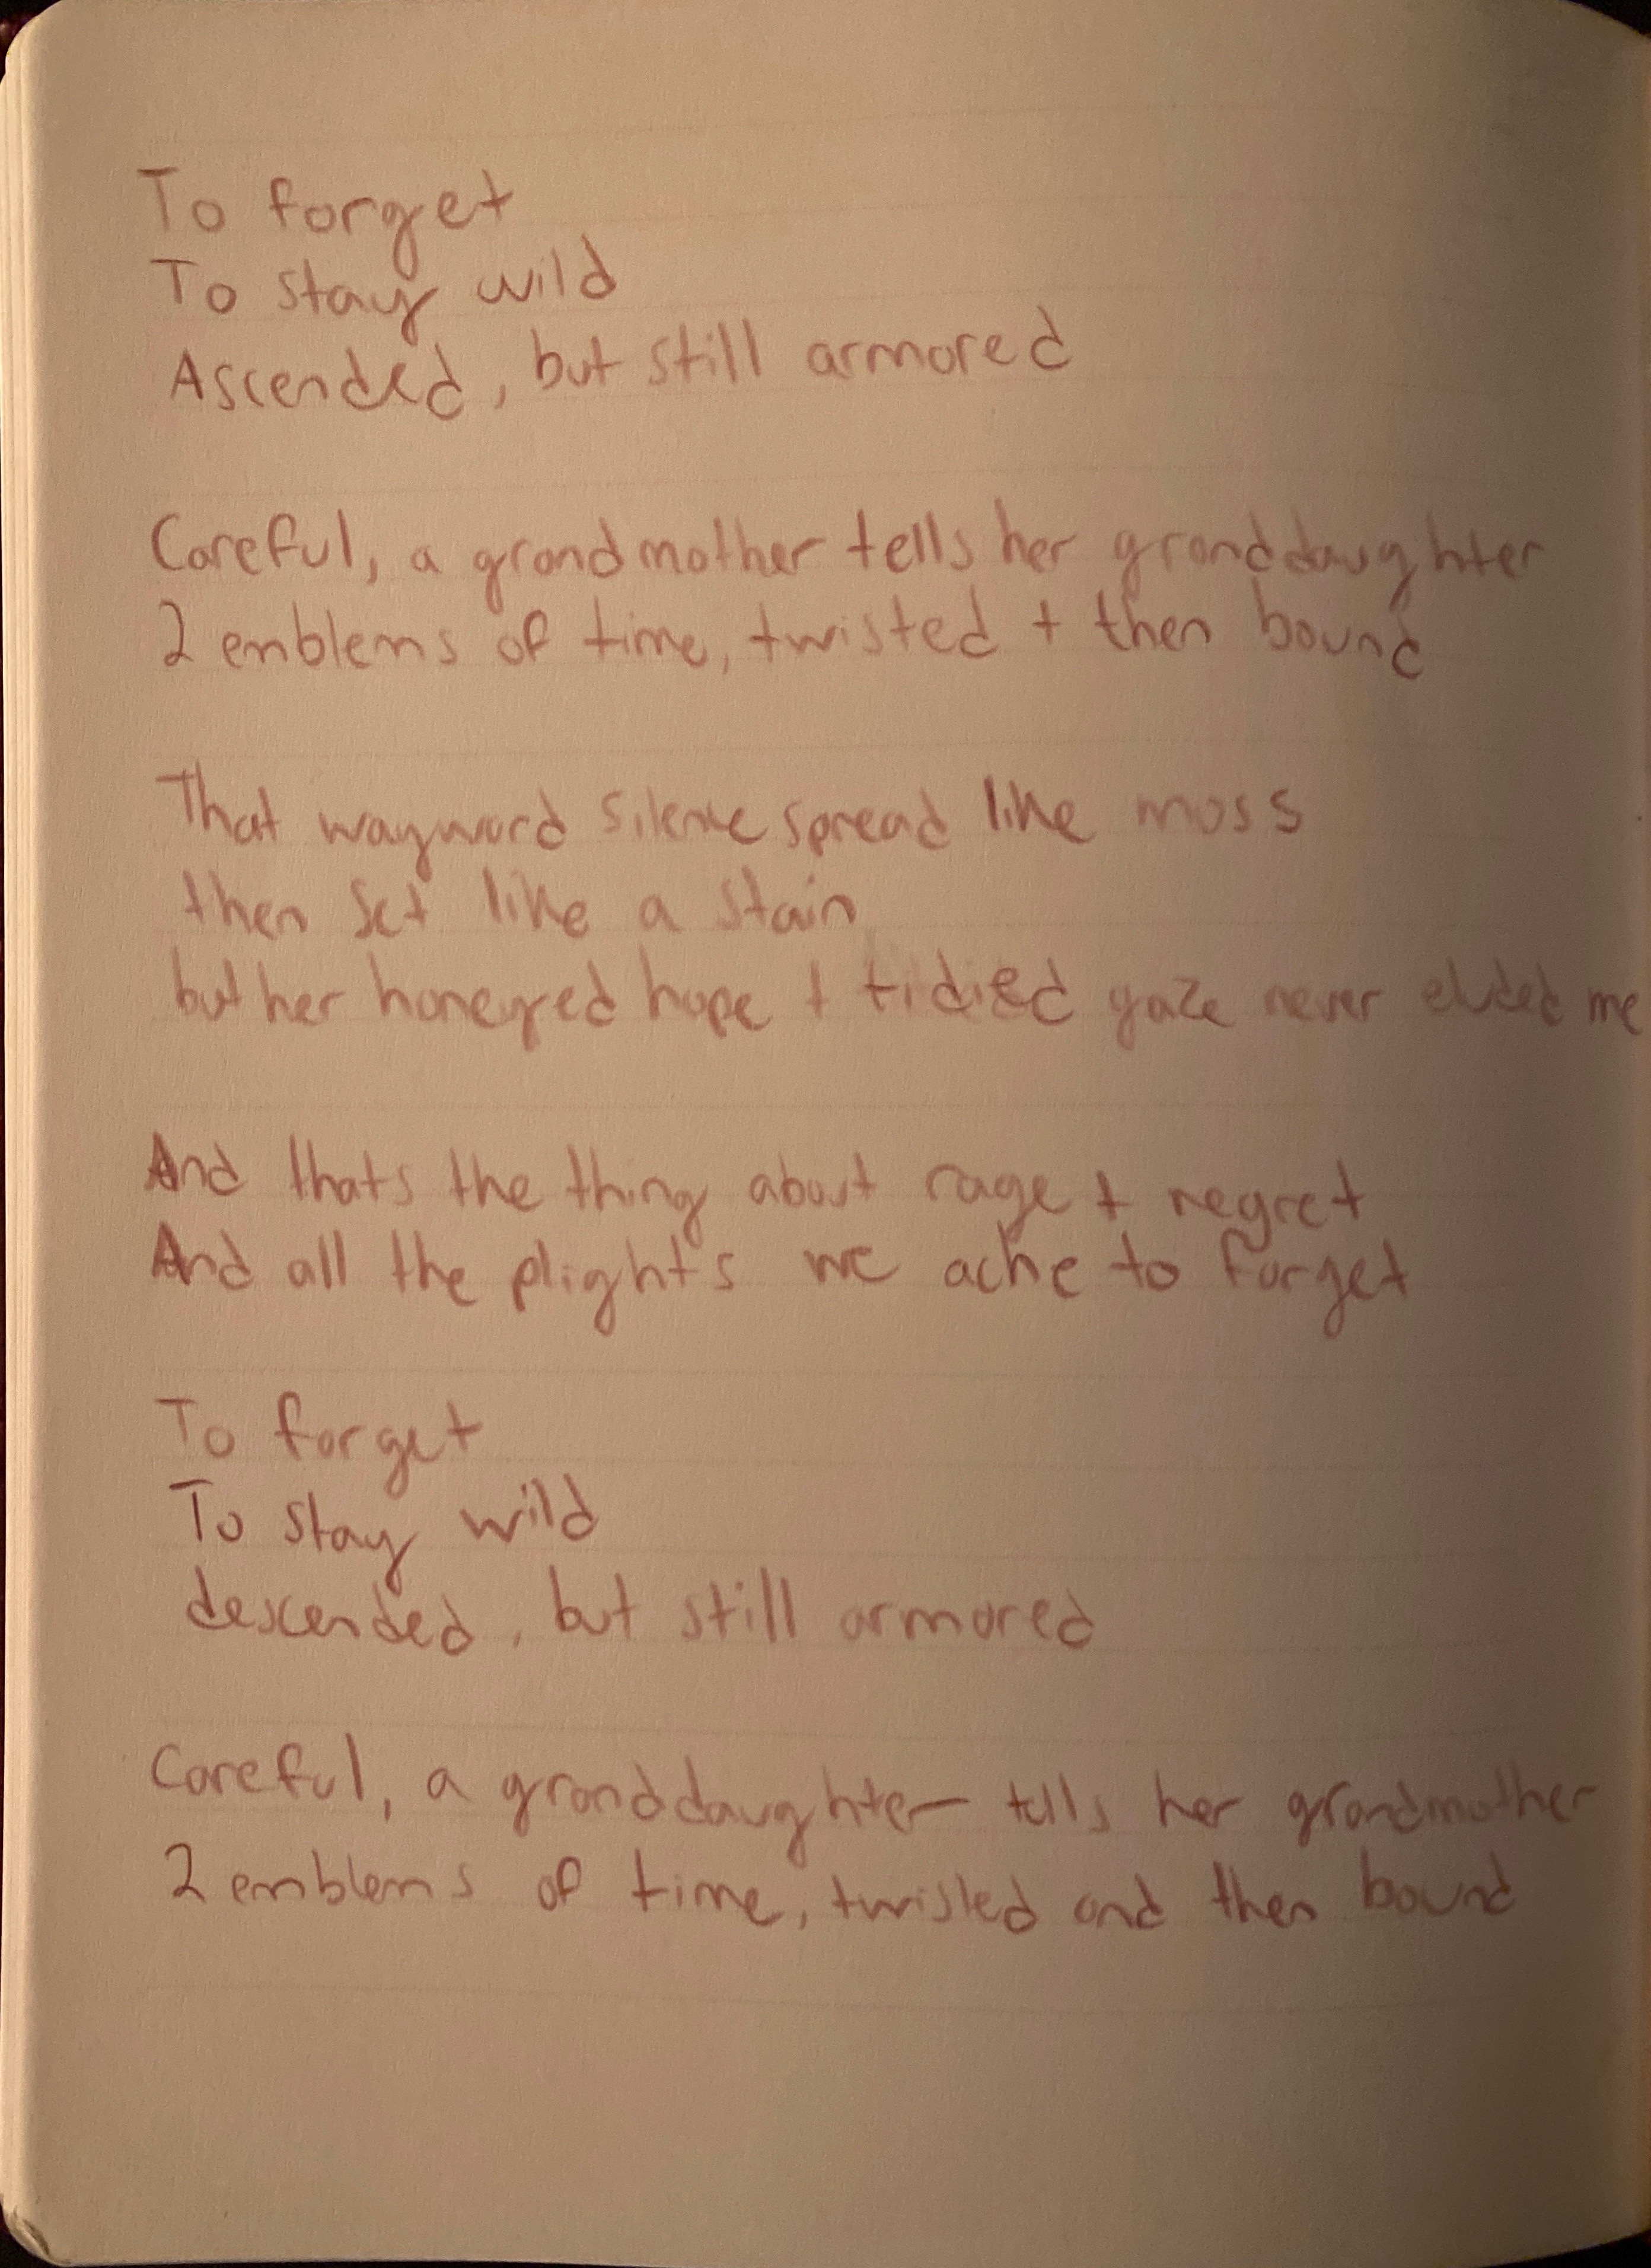 To forget
To stay wild
Ascended, but still armored
Careful, a grandmother tells her granddaughter
2 emblems of time, twisted + then bound
That wayward silence spread like moss
then set like a stain
but her honeyed hope + tidied gaze never eluded me
And thats the thing about rage + regret
And all the plights we ache to forget
To forget
To stay wild
descended, but still armored
Careful, a granddaughter tells her grandmother
2 emblems of time, twisted and then bound